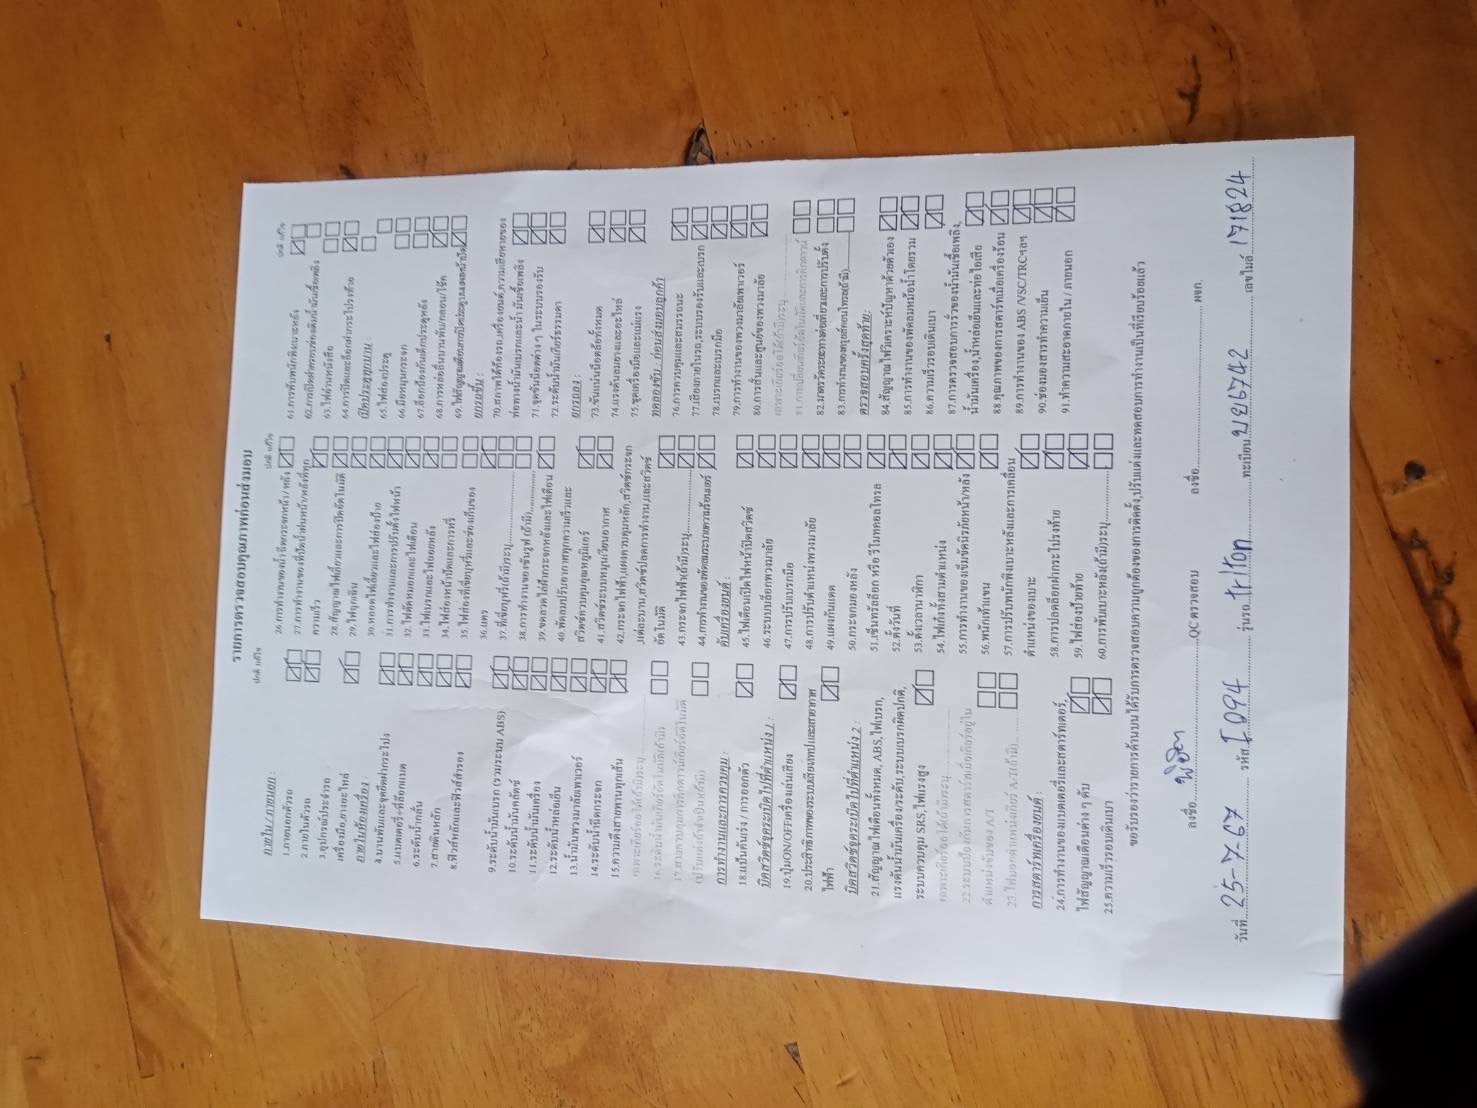 รายการตรวจสอบคุณภาพก่อนส่งมอบ
ปกติ แก้ไข
ภายใน / ภายนอก :
1.ภายนอกตัวรถ
2.ภายในตัวรถ
3.อุปกรณ์ประจำรถ
เครื่องมือ,ยางอะไหล่
ภายในห้องเครื่อง :
4.บานพับและจุดยึดฝากระโปรง
5.แบตเตอรี่+ที่ล็อกแบต
6.ระดับน้ำกลั่น
7.สายดินหลัก
8.ฟิวส์หลักและฟิวส์สำรอง
9.ระดับน้ำมันเบรก (รวมระบบ ABS)
10.ระดับน้ำมันคลัตช์
11.ระดับน้ำมันเครื่อง
12.ระดับน้ำหล่อเย็น
13.น้ำมันพวงมาลัยเพาเวอร์
14.ระดับน้ำฉีดกระจก
15.ความตึงสายพานทุกเส้น
เฉพาะเกียร์ออโต้(ถ้ามี)ระบุ
16.ระดับน้ำมันเกียร์อัตโนมัติ(ถ้ามี)
17.สายควบคุมการคิกดาวน์เกียร์อัตโนมัติ
(ปรับแต่งถ้าจำเป็น)(ถ้ามี)
การทำงานและการควบคุม :
18.แป้นคันเร่ง / การออกตัว
บิดสวิตช์จุดระเบิดไปที่ตำแหน่ง 1 :
19.ปุ่มON/OFFเครื่องเล่นเสียง
20.ประสิทธิภาพของระบบเสียง/เทปและสายอากาศ
ไฟฟ้า
บิดสวิตช์จุดระเบิดไปที่ตำแหน่ง 2 :
21.สัญญาณไฟเตือนทั้งหมด, ABS,ไฟเบรก,
แรงดันน้ำมันเครื่อง/ระดับ,ระบบเบรกผิดปกติ,
ระบบควบคุม SRS,ไฟแรงสูง
เฉพาะเกียร์ออโต้(ถ้ามี)ระบุ
22.ระบบป้องกันการสตาร์ทเมื่อเกียร์อยู่ใน
ตำแหน่งขับของ A/T
23.ไฟบอกตำแหน่งเกียร์ A/T(ถ้ามี)
การสตาร์ทเครื่องยนต์ :
24.การทำงานของแบตเตอรี่และสตาร์ทเตอร์,
ไฟสัญญาณเตือนต่าง ๆ ดับ
25.ความเร็วรอบเดินเบา
ปกติ แก้ไข
26.การทำงานของน้ำฉีดกระจกหน้า / หลัง
27.การทำงานของที่ปัดน้ำฝนหน้า/หลังที่ทุก
ความเร็ว
28.สัญญาณไฟเลี้ยวและการปิดอัตโนมัติ
29.ไฟฉุกเฉิน
30.หลอดไฟเลี้ยวและไฟส่องป้าย
31.การทำงานและการปรับตั้งไฟหน้า
32.ไฟตัดหมอกและไฟเตือน
33.ไฟเบรกและไฟถอยหลัง
34.ไฟส่องหน้าปัดและการหรี่
35.ไฟส่องที่เขี่ยบุหรี่และช่องเก็บของ
36.แตร
37.ที่เขี่ยบุหรี่(ถ้ามี)ระบุ
38.การทำงานของซันรูฟ (ถ้ามี)
39.ขดลวดไล่ฝ้ากระจกหลังและไฟเตือน
40.พัดลมปรับอากาศทุกความเร็วและ
สวิตช์ควบคุมอุณหภูมิแอร์
41.สวิตช์ระบบหมุนเวียนอากาศ
42.กระจกไฟฟ้า,แผงควบคุมหลัก,สวิตช์กระจก
แต่ละบาน,สวิตช์ปลดการทำงาน,และสวิตช์
อัตโนมัติ
43.กระจกไฟฟ้า(ถ้ามี)ระบุ
44.การทำงานของพัดลมระบายความร้อนแอร์
ดับเครื่องยนต์ :
45.ไฟเตือนเปิดไฟหน้าปิดสวิตช์
46.ระบบบล็อกพวงมาลัย
47.การปรับเบรกมือ
48.การปรับตำแหน่งพวงมาลัย
49.แผงกันแดด
50.กระจกมองหลัง
51.เซ็นทรัลล็อก หรือ รีโมทคอลโทรล
52.ตั้งวันที่
53.ตั้งเวลานาฬิกา
54.ไฟเก๋งทั้งสามตำแหน่ง
55.การทำงานของเข็มขัดนิรภัยหน้า/หลัง
56.พนักเท้าแขน
57.การปรับพนักพิงเบาะหลังและการเคลื่อน
ตำแหน่งของเบาะ
58.การปลดล็อกฝากระโปรงท้าย
59.ไฟส่องป้ายท้าย
60.การพับเบาะหลัง(ถ้ามี)ระบุ
ปกติ แก้ไข
61.การพับพนักพิงเบาะหลัง
62.การเปิดฝาครอบช่องเติมน้ำมันเชื้อเพลิง
63.ไฟอ่านหนังสือ
64.การปิดและล็อกฝากระโปรงท้าย
เปิดประตูทุกบาน :
65.ไฟส่องประตู
66.มือหมุนกระจก
67.ล็อกป้องกันเด็กประตูหลัง
68.การหล่อลื่นบานพับ/กลอน/โช๊ก
ยกรถขึ้น :
70.สภาพใต้ท้องรถ,เครื่องยนต์,ความเสียหายของ
ท่อทางน้ำมันเบรกและน้ำมันเชื้อเพลิง
71.จุดขันน็อตต่าง ๆ ในระบบรองรับ
72.ระดับน้ำมันเกียร์ธรรมดา
ยกรถลง :
73.ขันแน่นน็อตล้อทั้งหมด
74.แรงดันลมยางและอะไหล่
75.ชุดเครื่องมือและแม่แรง
ทดลองขับ : ก่อนส่งมอบลูกค้า
76.การควบคุมและสมรรถนะ
77.เสียงภายในรถ,ระบบรองรับและเบรก
78.เบรกและเบรกมือ
79.การทำงานของพวงมาลัยเพาเวอร์
80.การสั่นและศูนย์ของพวงมาลัย
เฉพาะเกียร์ออโต้(ถ้ามี)ระบุ
81.การเปลี่ยนเกียร์อัตโนมัติและการคิกดาวน์
82.มาตรวัดระยะทางต่อเที่ยวและการปรับตั้ง
83.การทำงานของครูยส์คอนโทรล(ถ้ามี)
ตรวจสอบครั้งสุดท้าย:
84.สัญญาณไฟวิเคราะห์ปัญหาด้วยตัวเอง
85.การทำงานของพัดลมหม้อน้ำโดยรวม
86.ความเร็วรอบเดินเบา
87.การตรวจสอบการรั่วของน้ำมันเชื้อเพลิง,
น้ำมันเครื่อง,น้ำหล่อเย็นและท่อไอเสีย
88.คุณภาพของการสตาร์ทเมื่อเครื่องร้อน
89.การทำงานของ ABS /VSC/TRCฯลฯ
90.ช่องมองสารทำความเย็น
91.ทำความสะอาดภายใน / ภายนอก
ขอรับรองว่ารายการด้านบนได้รับการตรวจสอบความถูกต้องของการติดตั้ง,ปรับแต่งและทดสอบการทำงานเป็นที่เรียบร้อยแล้ว
ลงชื่อ QC ตรวจสอบ ลงชื่อ ผจก.
วันที่ 25-7-67 รหัส I094 รุ่นรถ triton ทะเบียน ขข6742 เลขไมล์ 171824